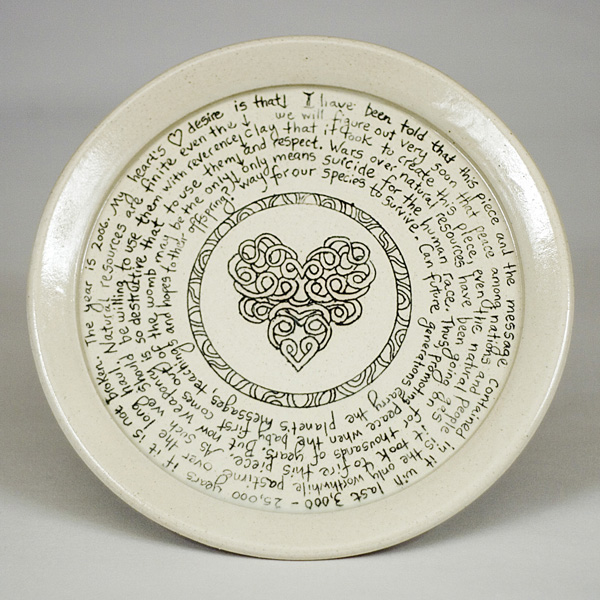 I have been told that this piece and the message contained in it will last 3,000 - 25,000 years if it is not broken. The year is 2006. My heart's ♡ desire is that↓
we will figure out very soon that peace among nations and people is the only worthwhile pastime over the long haul. Natural resources are finite even the ↓
clay that it took to create this piece, even the natural gas it took to fire this piece. As such we should be willing to use them with reverence
and respect. Wars over natural resources have been going on for thousands of years but now weaponry is so destructive that to use them
only means suicide for the human race. Thus, promoting peace when the baby first comes out of the womb may be the only
way for our species to survive. Can future generations carry the planet's messages, teachings and hopes to their offspring?